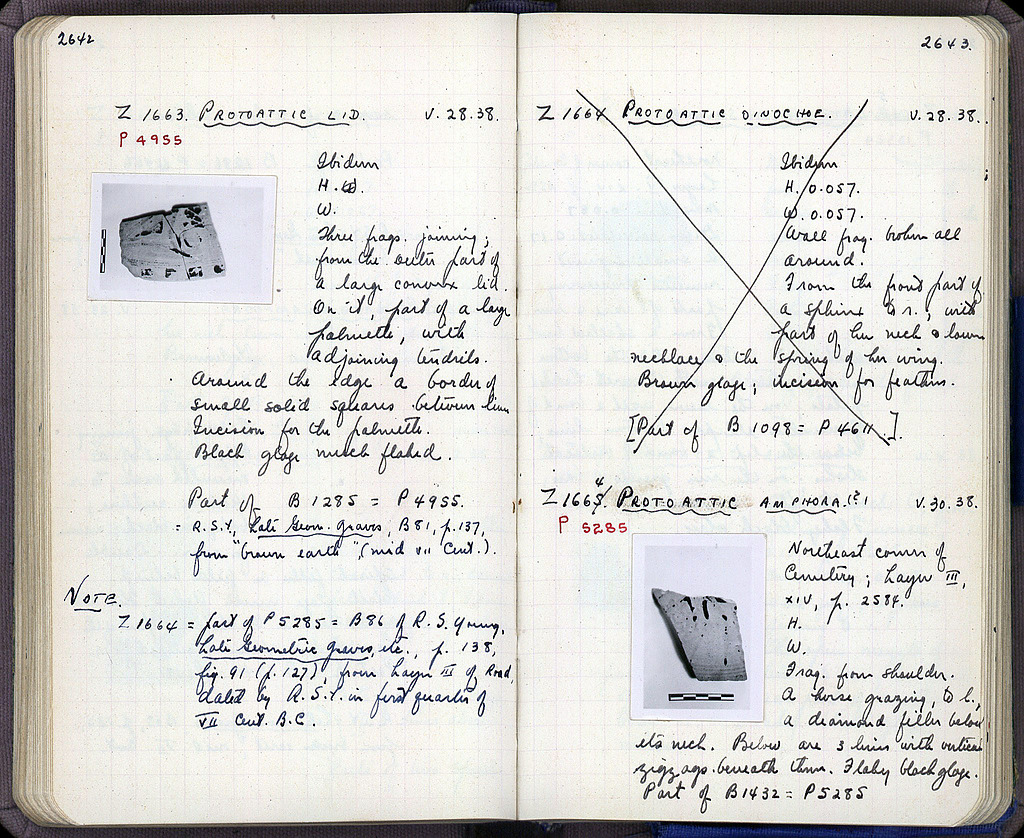 2642
Z 1663. PROTOATTIC LID. V.28.38.
P 4955
Ibidem
H.
W.
Three frags. joining;
from the outer part of
a large convex lid.
On it, part of a large
palmette, with
adjoining tendrils.
Around the edge a border of
small solid squares between lines
Incision for the palmette.
Black glaze much flaked.
Part of B 1285 = P 4955.
= R.S.Y., Late Geom. graves, B81, p.137,
from "brown earth" (mid VII Cent.).
NOTE.
Z 1664 = part of P 5285 = B86 of R.S. Young,
Late Geometric Graves, etc., p. 138,
fig. 91 (p.127), from Layer III of Road,
dated by R.S.Y. in first quarter of
VII Cent. B.C.
2643.
Z 1664 PROTOATTIC OINOCHOE. V.28.38.
Ibidem
H. 0.057.
W. 0.057.
Wall frag. broken all
around.
From the front part of
a sphinx to r., with
part of her neck & lower
necklace & the spring of her wing.
Brown glaze; incision for feathers.
[Part of B 1098 = P 4611 ].
Z 1665 4 PROTOATTIC AMPHORA.(?) V.30.38.
P 5285
Northeast corner of
Cemetery; Layer III,
XIV, p. 2584.
H.
W.
Frag. from shoulder.
A horse grazing, to l.,
a diamond filler below
its neck. Below are 3 lines with vertical
zigzags beneath them. Flaky black glaze.
Part of B1432 = P5285